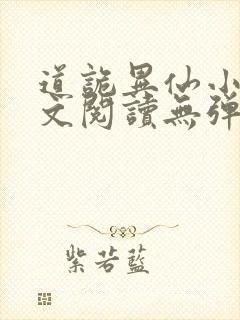 道詭異仙小
文閱讀無彈
紫若藍